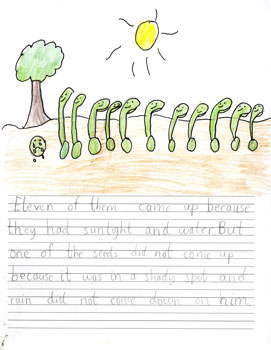 Eleven of them came up because
they had sunlight and water. But
one of the seeds did not come up
because it was in a shady spot and
rain did not come down on him.